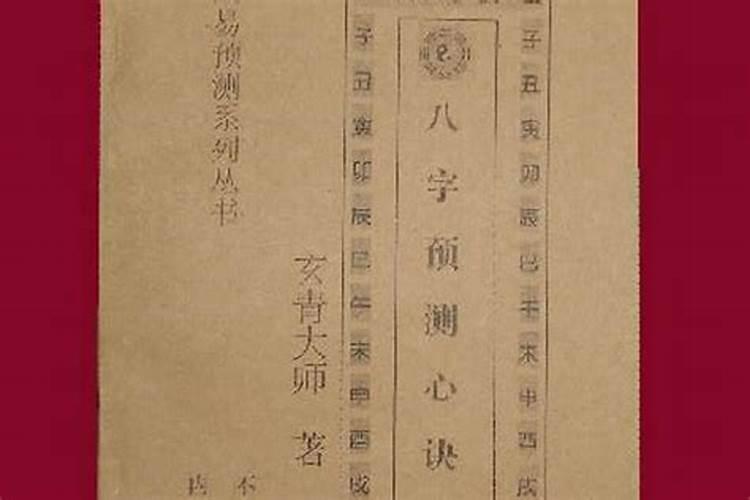 八字预测心诀
易预测系列丛书
玄青大师 著
子丑寅卯辰巳午未申酉戌
子丑寅卯辰巳午未申酉戌
内 不